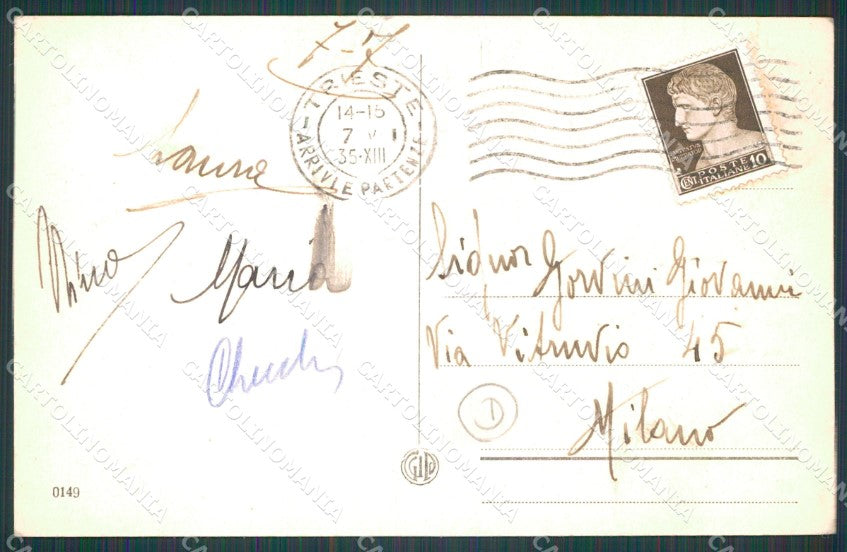 7-7
TRIESTE
14-15
7 V I
35·XIII
ARRIVI E PARTENZE
Laura
Nino
Maria
Signor Gordini Giovanni
Via Vitruvio 45
Milano
D
0149
POSTE
ITALIANE
CENT. 10
CARTOLINOMANIA